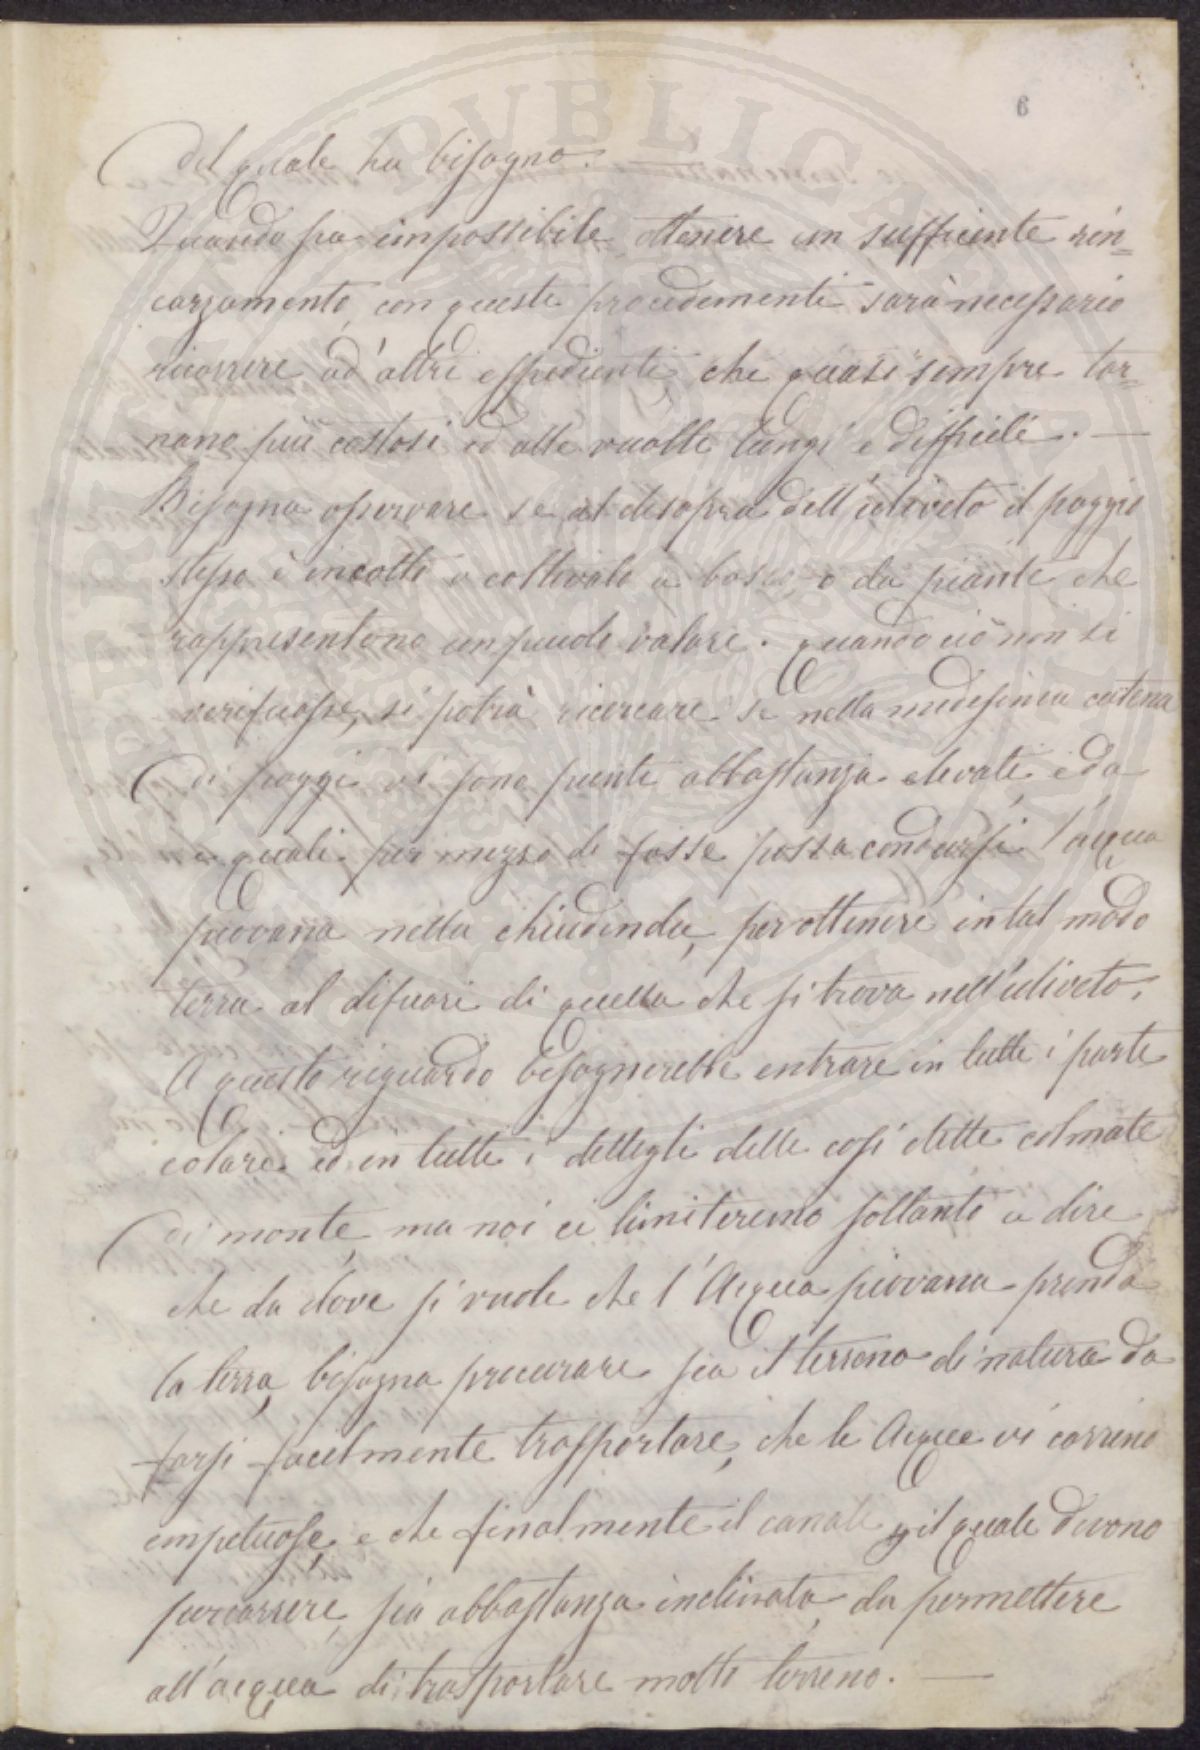 6
del quale ha bisogno.
Quando sia impossibile ottenere un sufficente rin=
carzamento, con questi procedementi sarà necessario
ricorrere ad altri espedienti, che quasi sempre tor=
nano più costosi ed alle vuolte lungi e difficili. —
Bisogna osservare se al disopra dell'uliveto il poggio
stesso è incolto o coltivato a bosco, o da piante che
rappresentono un piccolo valore. quando ciò non si
verificasse, si potrà ricercare se nella medesima catena
di poggi vi sono punti abbastanza elevati, e da
i quali per mezzo di fosse possa condursi l'acqua
piovana nella chiudenda, per ottenere in tal modo
terra al difuori di quella che si trova nell'uliveto.
A questo riguardo bisognerebbe entrare in tutti i parti
colari ed in tutti i dettegli delle così dette colmate
di monte, ma noi ci limiteremo soltanto a dire
che da dove si vuole che l'Acqua piovana prenda
la terra, bisogna procurare sia il terreno di natura da
farsi facelmente trasportare, che le Acque vi corrino
impetuose, e che finalmente il canale il quale devono
percorrere, sia abbastanza inclinato, da permettere
all'acqua di trasportare molto terreno. —
PVBLICA